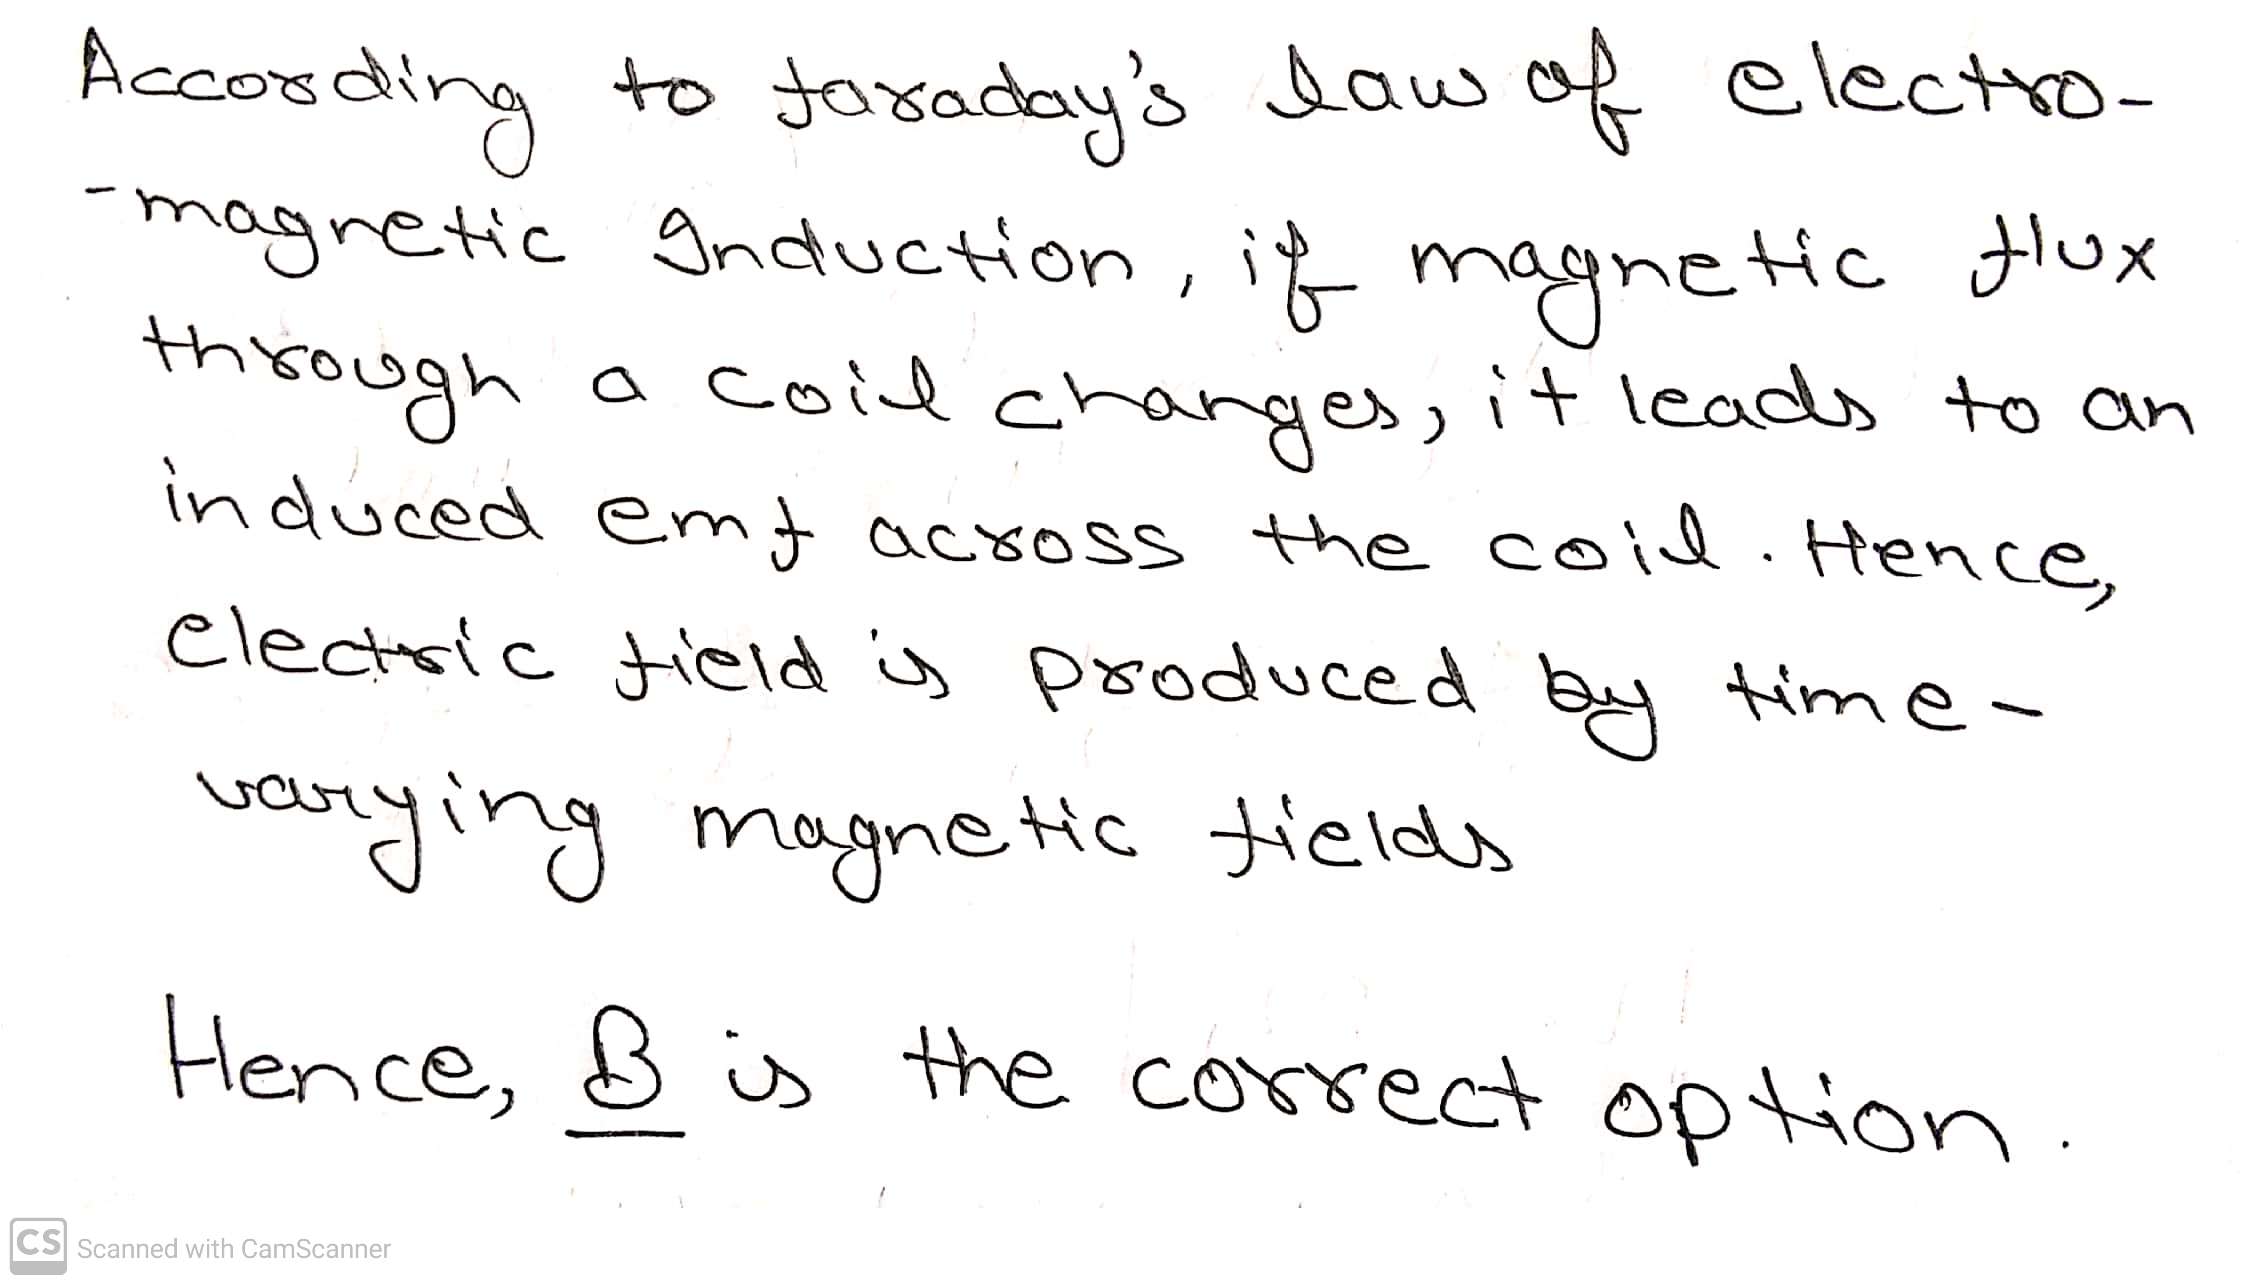 According to faraday's law of electro-
-magnetic Induction, if magnetic flux
through a coil changes, it leads to an
induced emf across the coil. Hence,
electric field is produced by time-
varying magnetic fields
Hence, B is the correct option.
CS Scanned with CamScanner